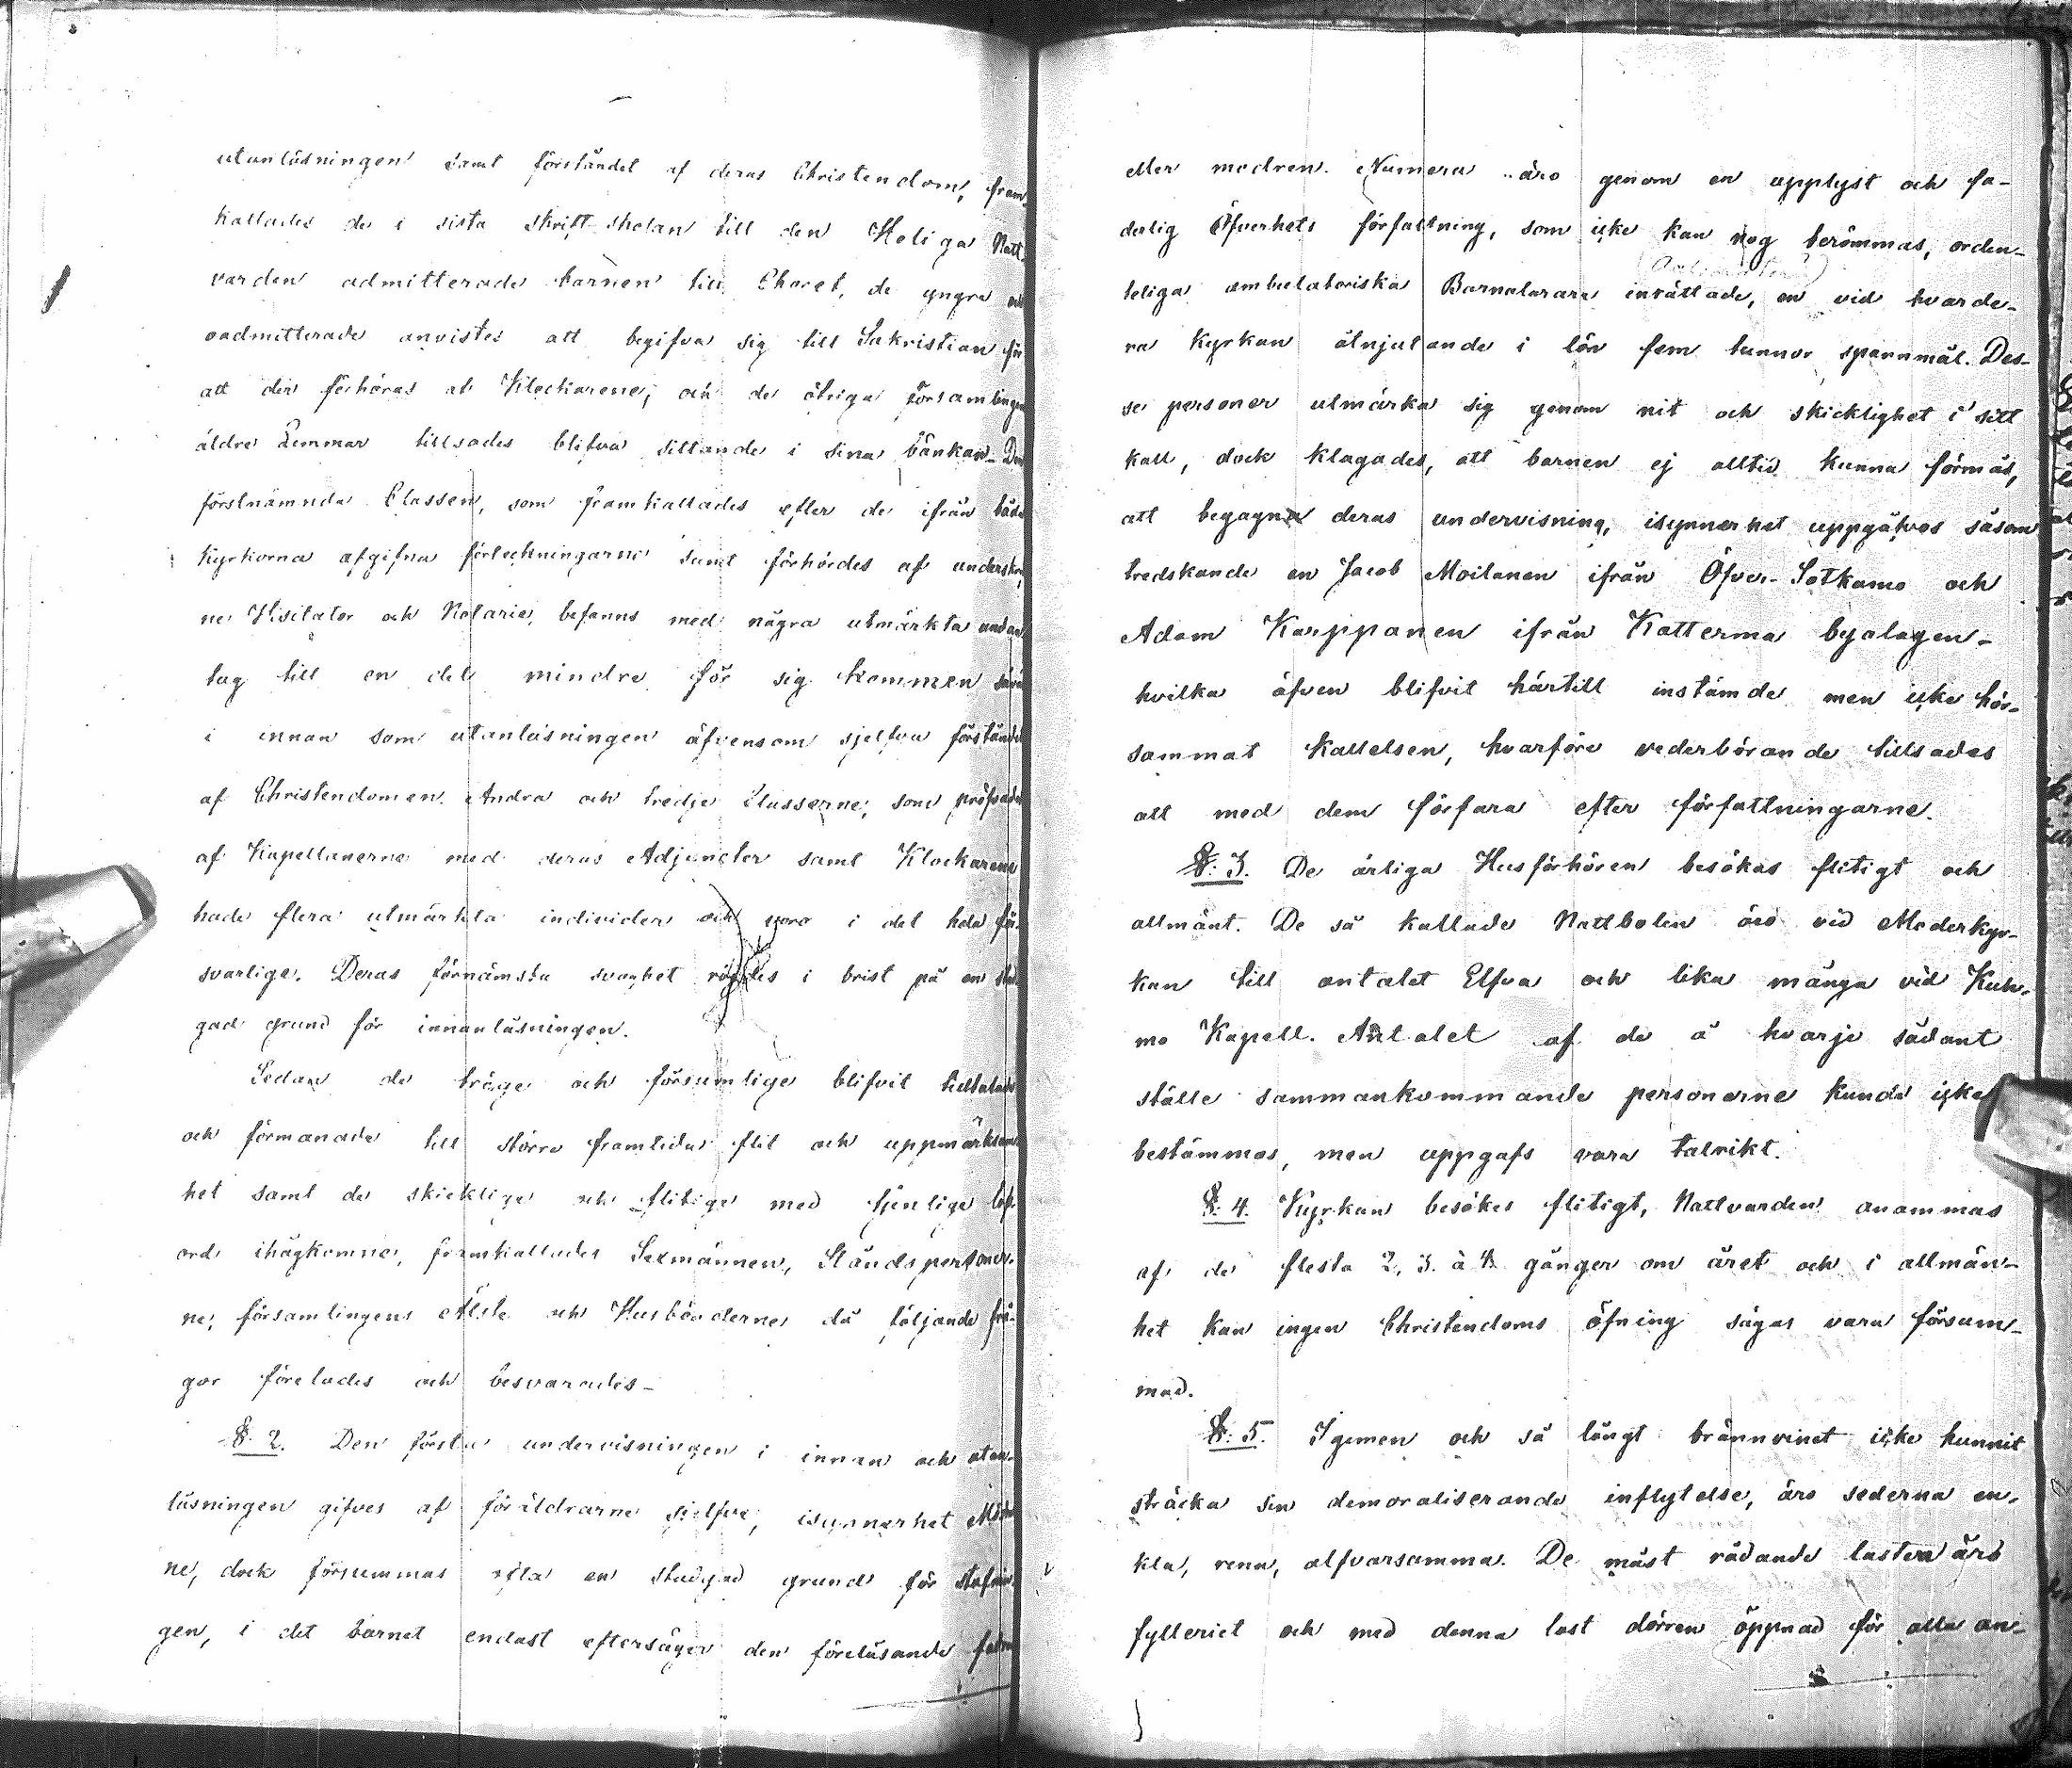 utanläsningen samt förståndet af deras Christendom, fram-
kallades de i sista skrift skolan till den Heliga Natt-
varden admitterade barnen till Choret, de yngre och
oadmitterade anvistes att begifva sig till Sakristian för
att der förhöras af Klockarene, och de öfriga församlingens
äldre Lemmar tillsades blifva sittande i sina bänkar. Den
förstnämnda Classen, som framkallades efter de ifrån båda
Kyrkorna afgifna förteckningarne samt förhördes af underskref-
ne Visitator och Notarie, befanns med några utmärkta undan-
tag till en del mindre för sig kommen såväl
i innan som utanläsningen äfvensom sjelfva förståndet
af Christendomen. Andra och tredje Classerne, som pröfvades
af Kapellanerne med deras Adjuncter samt Klockarene
hade flera utmärkta individer och voro i det hela för-
svarlige. Deras förnämsta svaghet röjdes i brist på en stad-
gad grund för innanläsningen.
Sedan de tröge och försumlige blifvit tilltalade
och förmanade till större framtida flit och uppmärksam-
het samt de skicklige och flitige med tjenlige lof-
ord ihågkomne, framkallades Sexmännen, Ståndspersoner-
ne, församlingens Älste och Husbönderne då följande frå-
gor förelades och besvarades-
§. 2. Den första undervisningen i innan och utan-
läsningen gifves af föräldrarne sjelfve, isynnerhet Mödrar-
ne, dock försummas ofta en stadgad grund för stafnin-
gen, i det barnet endast eftersäger den föreläsande fadren
eller modren. Numera äro genom en upplyst och fa-
derlig Öfverhets författning, som icke kan nog berömmas, orden-
teliga ambulatoriska Barnalärare inrättade, en vid hvarde-
ra Kyrkan åtnjutande i lön fem tunnor spannmål. Des-
se personer utmärka sig genom nit och skicklighet i sitt
kall, dock klagades, att barnen ej alltid kunna förmås,
att begagna deras undervisning, isynnerhet uppgåfvos såsom
tredskande en Jacob Moilanen ifrån Öfver-Sotkamo och
Adam Karppanen ifrån Katterma byalagen-
hvilka äfven blifvit härtill instämde men icke hör-
sammat kallelsen, hvarföre vederbörande tillsades
att med dem förfara efter författningarne.
§: 3. De årliga Husförhören besökas flitigt och
allmänt. De så kallade Nattbolen äro vid Moderkyr-
kan till antalet Elfva och lika många vid Kuh-
mo Kapell. Antalet af de å hvarje sådant
ställe sammankommande personerne kunde icke
bestämmas, men uppgafs vara talrikt.
§: 4. Kyrkan besökes flitigt, Nattvarden anammas
af de flesta 2, 3. à 4 gånger om året och i allmän-
het kan ingen Christendoms öfning sägas vara försum-
mad.
§: 5. Igemen och så långt brännvinet icke hunnit
sträcka sin demoraliserande inflytelse, äro sederna en-
kla, rena, alfvarsamma. De mäst rådande lasten äro
fylleriet och med denna last dörren öppnad för alla an-